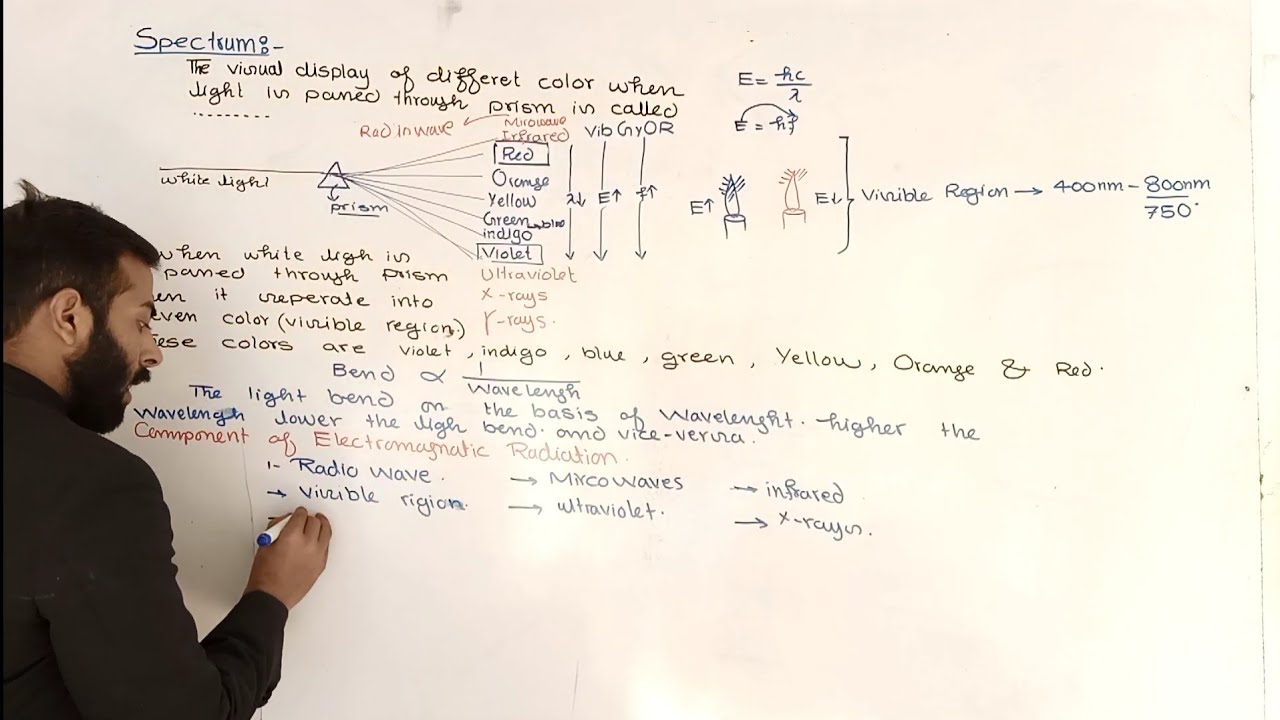 Spectrum:-
The visual display of differet color when
light is passed through prism is called
.........
E = hc/λ
E = hf
Radio wave
Mirowave
Infrared
Vib GyOR
Red
Orange
Yellow
Green → blue
indigo
Violet
Ultraviolet
X-rays
γ-rays.
white light
prism
λ↓ E↑ f↑
E↑ E↓
Visible Region → 400nm - 800nm
750.
when white ligh is
passed through prism
en it seperate into
even color (visible region.)
ese colors are violet, indigo, blue, green, Yellow, Orange & Red.
Bend ∝ 1/Wavelengh
The light bend on the basis of Wavelenght. higher the
Wavelengh lower the ligh bend. and vice-versa.
Component of Electromagnatic Radiation.
1- Radio wave. → Mircowaves → infrared
→ Visible rigion. → ultraviolet. → x-rays.